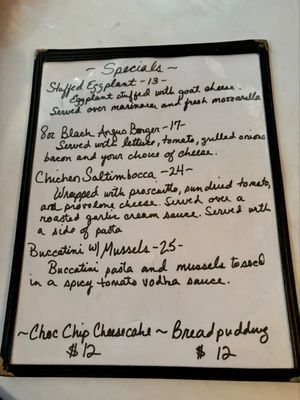 ~ Specials ~
Stuffed Eggplant -13-
Eggplant stuffed with goat cheese.
Served over marinara and fresh mozzarella
8oz Black Angus Burger -17-
Served with lettuce, tomato, grilled onions
bacon and your choice of cheese.
Chicken Saltimbocca -24-
Wrapped with proscuitto, sundried tomato,
and provolone cheese. Served over a
roasted garlic cream sauce. Served with
a side of pasta
Buccatini w/ Mussels -25-
Buccatini pasta and mussels tossed
in a spicy tomato vodka sauce.
~ Choc Chip Cheesecake ~ Breadpudding
$12 $12